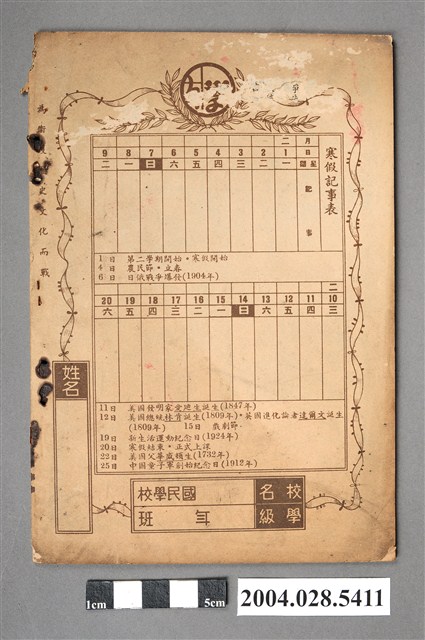 寒假記事表
月 二
日 1 2 3 4 5 6 7 8 9
星期 一 二 三 四 五 六 日 一 二
記事
1日 第二學期開始。寒假開始
4日 農民節。立春
6日 日俄戰爭爆發(1904年)
二
10 11 12 13 14 15 16 17 18 19 20
三 四 五 六 日 一 二 三 四 五 六
11日 美國發明家愛迪生誕生(1847年)
12日 美國總統林肯誕生(1809年)。英國進化論者達爾文誕生
(1809年) 15日 戲劇節
19日 新生活運動紀念日(1924年)
20日 寒假結束。正式上課
22日 美國父華盛頓生(1732年)
25日 中國童子軍創始紀念日(1912年)
校名 國民學校
學級 年 班
姓名
文化而戰
1cm 5cm
2004.028.5411